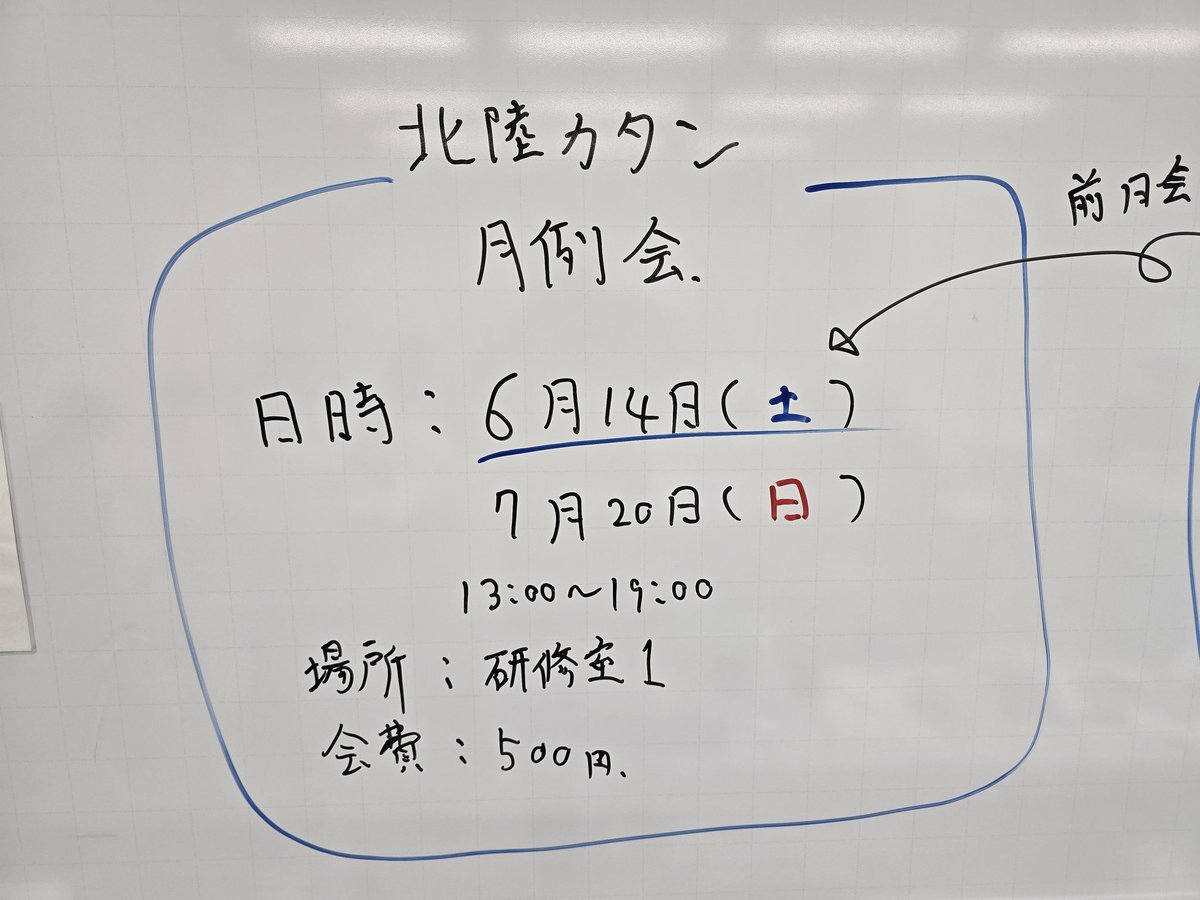 北陸カタン
月例会.
前日会
日時：6月14日(土)
7月20日(日)
13:00〜19:00
場所：研修室1
会費：500円.